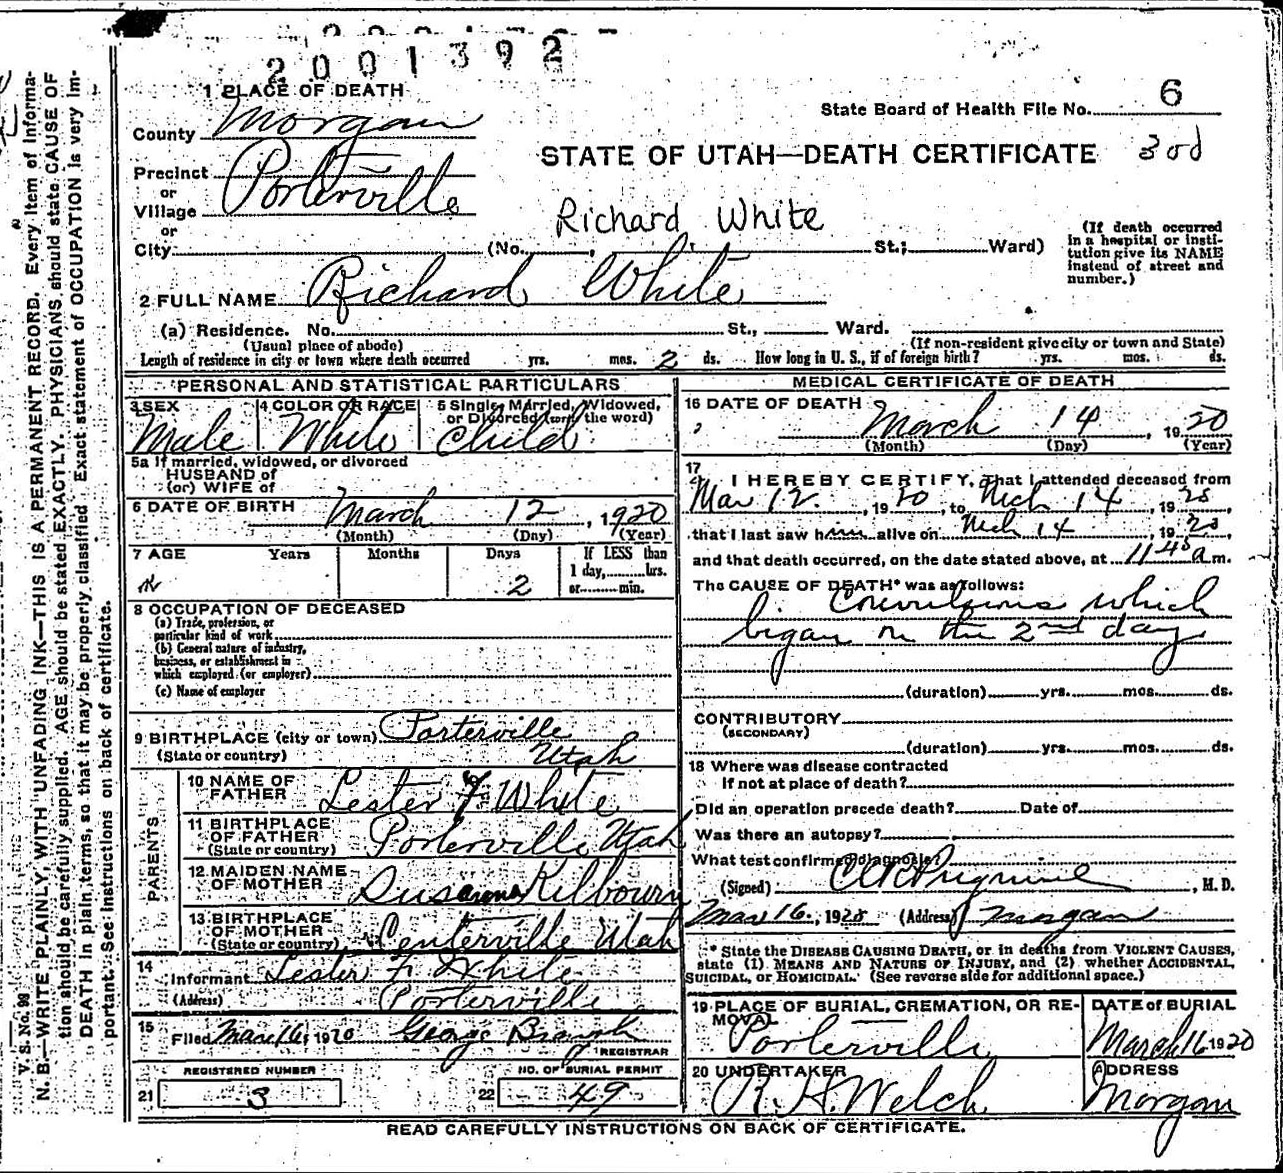 2001392
1 PLACE OF DEATH
County Morgan
State Board of Health File No. 6
STATE OF UTAH—DEATH CERTIFICATE 3 od
Precinct
or
Village Porterville
or
City (No. , St.; Ward)
Richard White
(If death occurred
in a hospital or insti-
tution give its NAME
instead of street and
number.)
2 FULL NAME Richard White
(a) Residence. No. St., Ward.
(Usual place of abode)
(If non-resident give city or town and State)
Length of residence in city or town where death occurred yrs. mos. 2 ds. How long in U. S., if of foreign birth? yrs. mos. ds.
PERSONAL AND STATISTICAL PARTICULARS
3 SEX
Male
4 COLOR OR RACE
White
5 Single, Married, Widowed,
or Divorced (write the word)
Child
5a If married, widowed, or divorced
HUSBAND of
(or) WIFE of
6 DATE OF BIRTH March 12, 1920
(Month) (Day) (Year)
7 AGE Years Months Days
2
If LESS than
1 day, hrs.
or min.
8 OCCUPATION OF DECEASED
(a) Trade, profession, or
particular kind of work
(b) General nature of industry,
business, or establishment in
which employed (or employer)
(c) Name of employer
9 BIRTHPLACE (city or town) Porterville
(State or country) Utah
PARENTS
10 NAME OF
FATHER Lester F. White
11 BIRTHPLACE
OF FATHER
(State or country) Porterville Utah
12 MAIDEN NAME
OF MOTHER Susanna Kilbourn
13 BIRTHPLACE
OF MOTHER
(State or country) Centerville Utah
14
Informant Lester F. White
(Address) Porterville
15
Filed Mar 16, 1920 George Brough
REGISTRAR
REGISTERED NUMBER
21 3
NO. OF BURIAL PERMIT
22 49
MEDICAL CERTIFICATE OF DEATH
16 DATE OF DEATH
March 14, 1920
(Month) (Day) (Year)
17
I HEREBY CERTIFY, That I attended deceased from
Mar 12, 1920, to Mch 14, 1920,
that I last saw him alive on Mch 14, 1920,
and that death occurred, on the date stated above, at 11 40 a m.
The CAUSE OF DEATH* was as follows:
Convulsions which
began on the 2nd day
(duration) yrs. mos. ds.
CONTRIBUTORY
(SECONDARY)
(duration) yrs. mos. ds.
18 Where was disease contracted
If not at place of death?
Did an operation precede death? Date of
Was there an autopsy?
What test confirmed diagnosis?
(Signed) , M. D.
Mar 16, 1920 (Address) Morgan
* State the DISEASE CAUSING DEATH, or in deaths from VIOLENT CAUSES,
state (1) MEANS AND NATURE OF INJURY, and (2) whether ACCIDENTAL,
SUICIDAL, or HOMICIDAL. (See reverse side for additional space.)
19 PLACE OF BURIAL, CREMATION, OR RE-
MOVAL
Porterville
DATE of BURIAL
March 16 1920
20 UNDERTAKER
R. H. Welch
ADDRESS
Morgan
READ CAREFULLY INSTRUCTIONS ON BACK OF CERTIFICATE.
V. S. No. 98
N. B.—WRITE PLAINLY, WITH UNFADING INK—THIS IS A PERMANENT RECORD. Every item of informa-
tion should be carefully supplied. AGE should be stated EXACTLY. PHYSICIANS should state CAUSE OF
DEATH in plain terms, so that it may be properly classified. Exact statement of OCCUPATION is very im-
portant. See instructions on back of certificate.